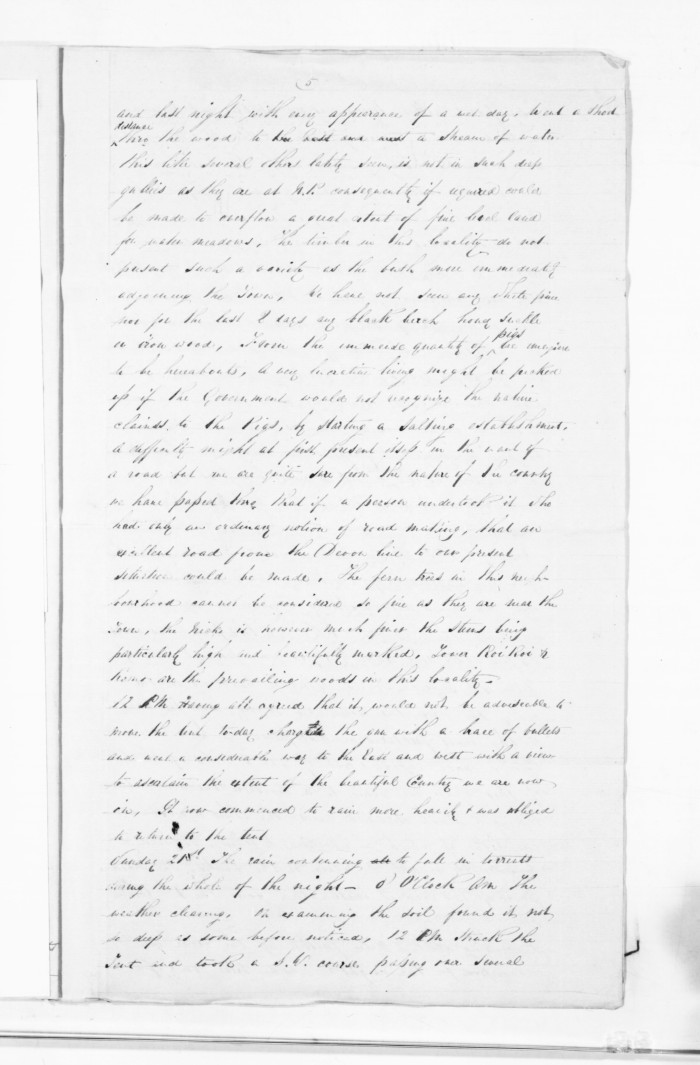 5
and last night with every appearance of a wet day, went a short
distance
thro the wood to the east and west a stream of water
this like several others lately seen, is not in such deep
gullies as they are at N.P. consequently if required could
be made to overflow a great extent of fine level land
for water meadows. The timber in this locality do not
present such a variety as the bush more immediately
adjoining the Town, We have not seen any White pine
nor for the last 2 days any black birch honey suckle
or iron wood, From the immense quantity of pigs we imagine
to be hereabouts, a very lucrative living might be picked
up if the Government would not recognize the native
claims to the Pigs, by starting a salting establishment,
A difficulty might at first present itself in the want of
a road but we are quite sure from the nature of the country
we have passed thro, that if a person undertook it who
had only an ordinary notion of road making, that an
excellent road from the Devon line to our present
situation could be made. The fern trees in this neigh-
bourhood cannot be considered so fine as they are near the
Town, the Nicho is however much finer the stems being
particularly high and beautifully marked, Towa Koi Koi &
are the prevailing woods in this locality -
12 PM Having all agreed that it would not be adviseable to
move the tent to-day charged the gun with a brace of bullets
and went a considerable way to the East and west with a view
to ascertain the extent of the beautiful Country we are now
in, It now commenced to rain more heavily & was obliged
to return to the tent
Sunday 21st The rain continuing to fall in torrents
during the whole of the night - O'Clock Am The
weather clearing, On examining the soil found it not
so deep as some before noticed, 12 PM Struck the
Tent and took a S.W. course passing over several